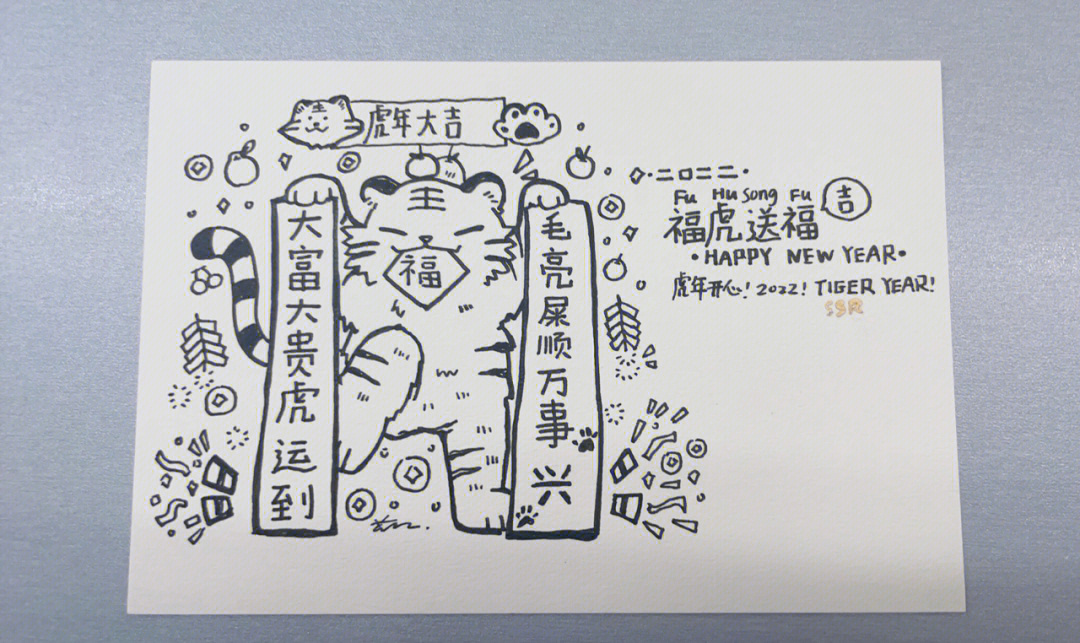 虎年大吉
主
福
大富大贵虎运到
毛亮屎顺万事兴
·二〇二二·
Fu Hu Song Fu
福虎送福
吉
·HAPPY NEW YEAR·
虎年开心! 2022! TIGER YEAR!
SBR